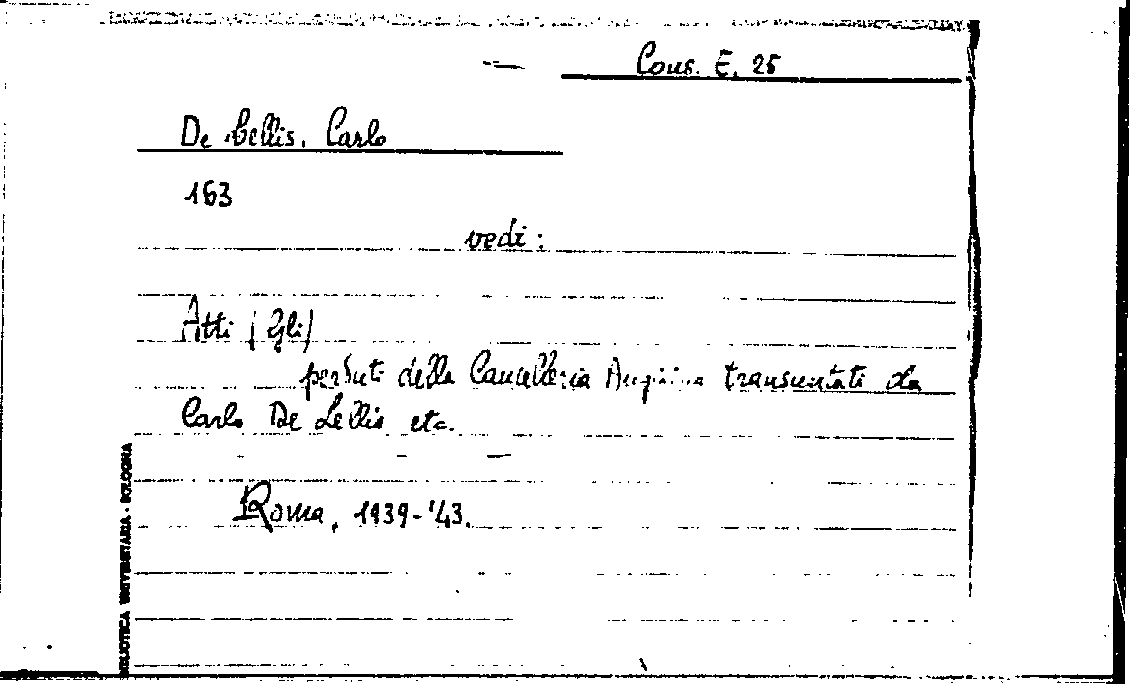 Cons. E. 25
De Lellis, Carlo
163
vedi:
Atti (Gli)
perduti della Cancelleria Angioina transuntati da
Carlo De Lellis etc.
Roma, 1939-'43.
BIBLIOTECA UNIVERSITARIA - BOLOGNA